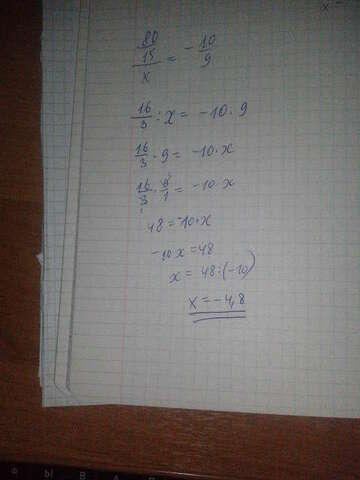 80/15/x = -10/9
16/3 : x = -10 · 9
16/3 · 9 = -10 · x
16/3 · 9/1 = -10 · x
48 = -10 · x
-10 x = 48
x = 48 : (-10)
x = -4,8
Ы В А